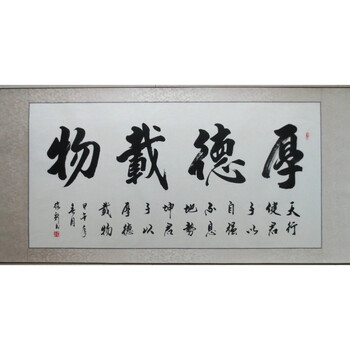 厚德載物
天行
健君
子以
自强
不息
地勢
坤君
子以
厚德
載物
甲午年
春月